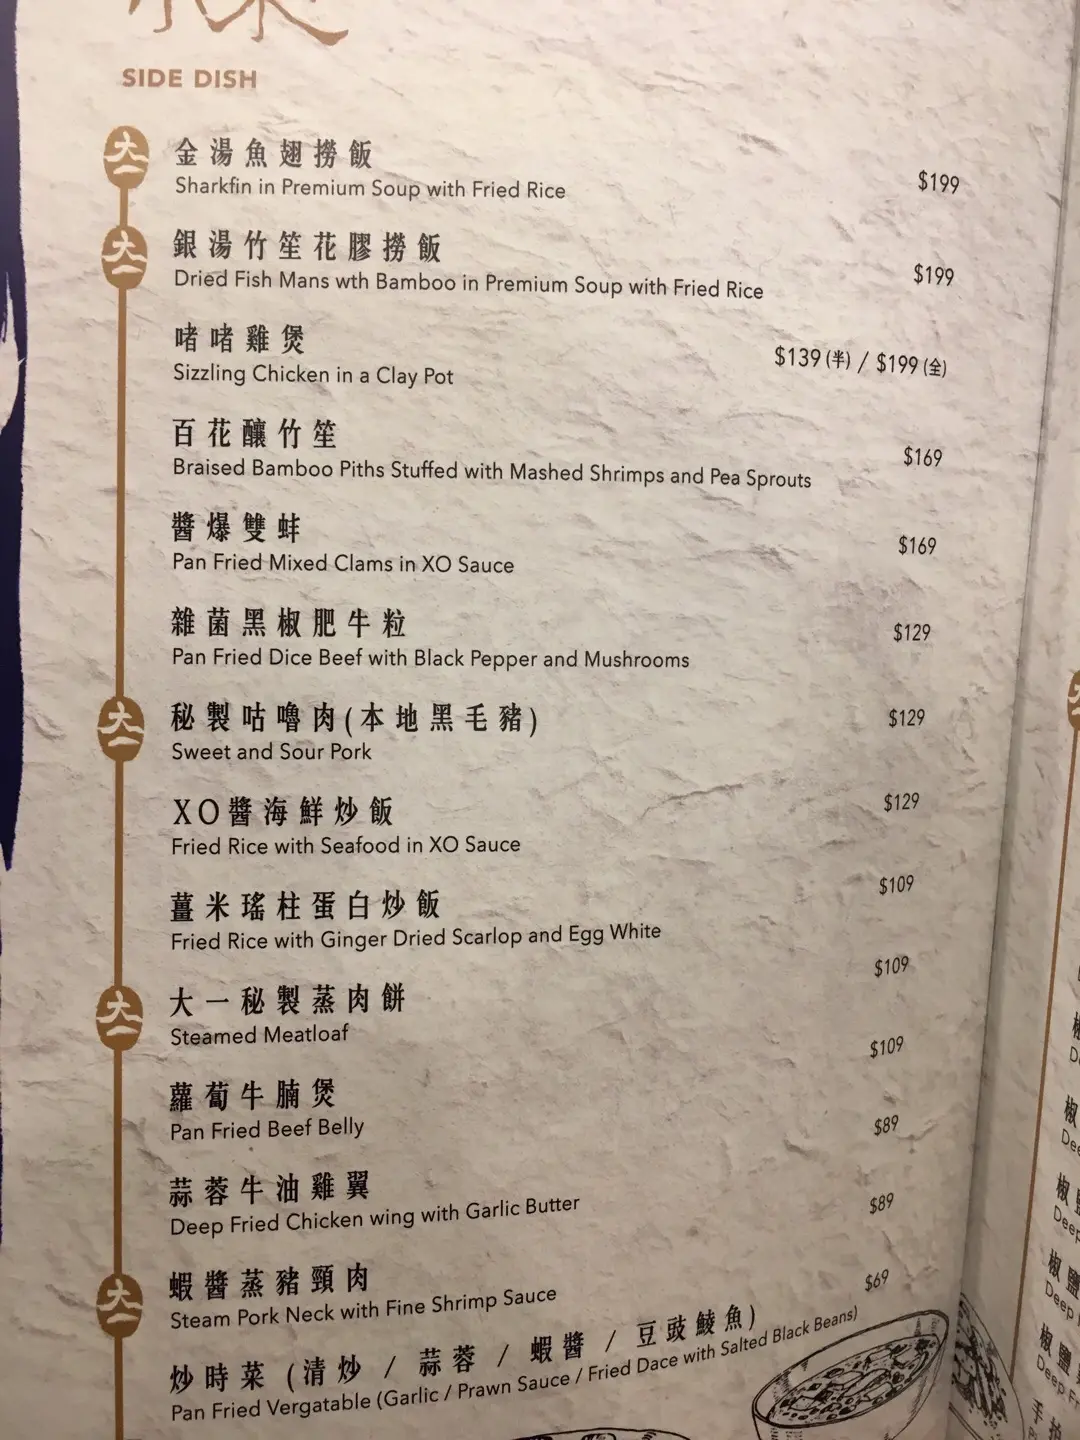 SIDE DISH
大一
金湯魚翅撈飯
Sharkfin in Premium Soup with Fried Rice
$199
大一
銀湯竹笙花膠撈飯
Dried Fish Mans wth Bamboo in Premium Soup with Fried Rice
$199
啫啫雞煲
Sizzling Chicken in a Clay Pot
$139 (半) / $199 (全)
百花釀竹笙
Braised Bamboo Piths Stuffed with Mashed Shrimps and Pea Sprouts
$169
醬爆雙蚌
Pan Fried Mixed Clams in XO Sauce
$169
雜菌黑椒肥牛粒
Pan Fried Dice Beef with Black Pepper and Mushrooms
$129
大一
秘製咕嚕肉(本地黑毛豬)
Sweet and Sour Pork
$129
XO醬海鮮炒飯
Fried Rice with Seafood in XO Sauce
$129
薑米瑤柱蛋白炒飯
Fried Rice with Ginger Dried Scarlop and Egg White
$109
大一
大一秘製蒸肉餅
Steamed Meatloaf
$109
蘿蔔牛腩煲
Pan Fried Beef Belly
$109
蒜蓉牛油雞翼
Deep Fried Chicken wing with Garlic Butter
$89
大一
蝦醬蒸豬頸肉
Steam Pork Neck with Fine Shrimp Sauce
$89
炒時菜 (清炒 / 蒜蓉 / 蝦醬 / 豆豉鯪魚)
Pan Fried Vergatable (Garlic / Prawn Sauce / Fried Dace with Salted Black Beans)
$69